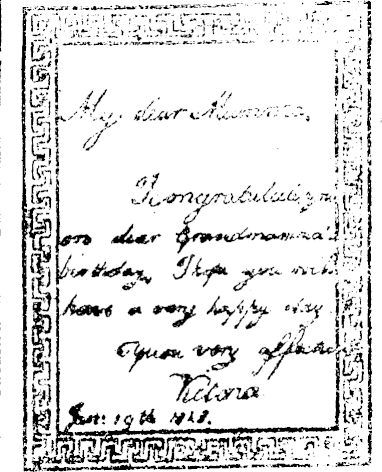 My dear Mamma,
Kongratulatezn
on dear Grandmamma's
birthday, I hope you will
have a very happy day
Your very affecti
Victoria
Jan: 19th